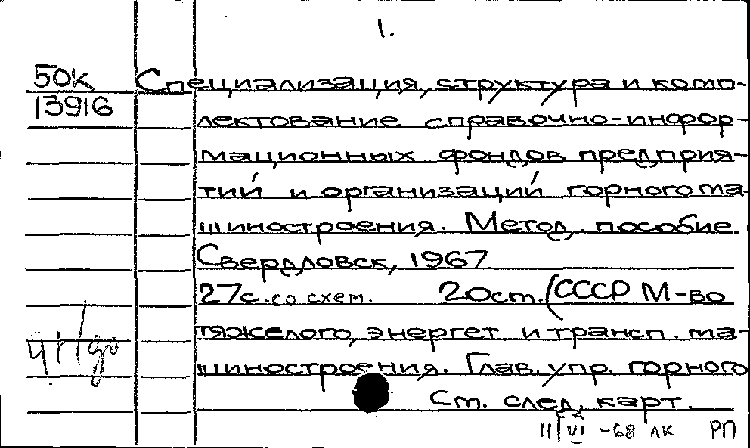 1.
50К Специализация, структура и комп-
13916 лектование справочно-инфор-
мационных фондов предприя-
тий и организаций горного ма-
шиностроения. Метод. пособие.
Свердловск, 1967
27с. со схем. 20ст. (СССР М-во
тяжелого, энергет. и трансп. ма-
шиностроения. Глав. упр. горного
Ст. след. карт.
11/VI -68 лк РП